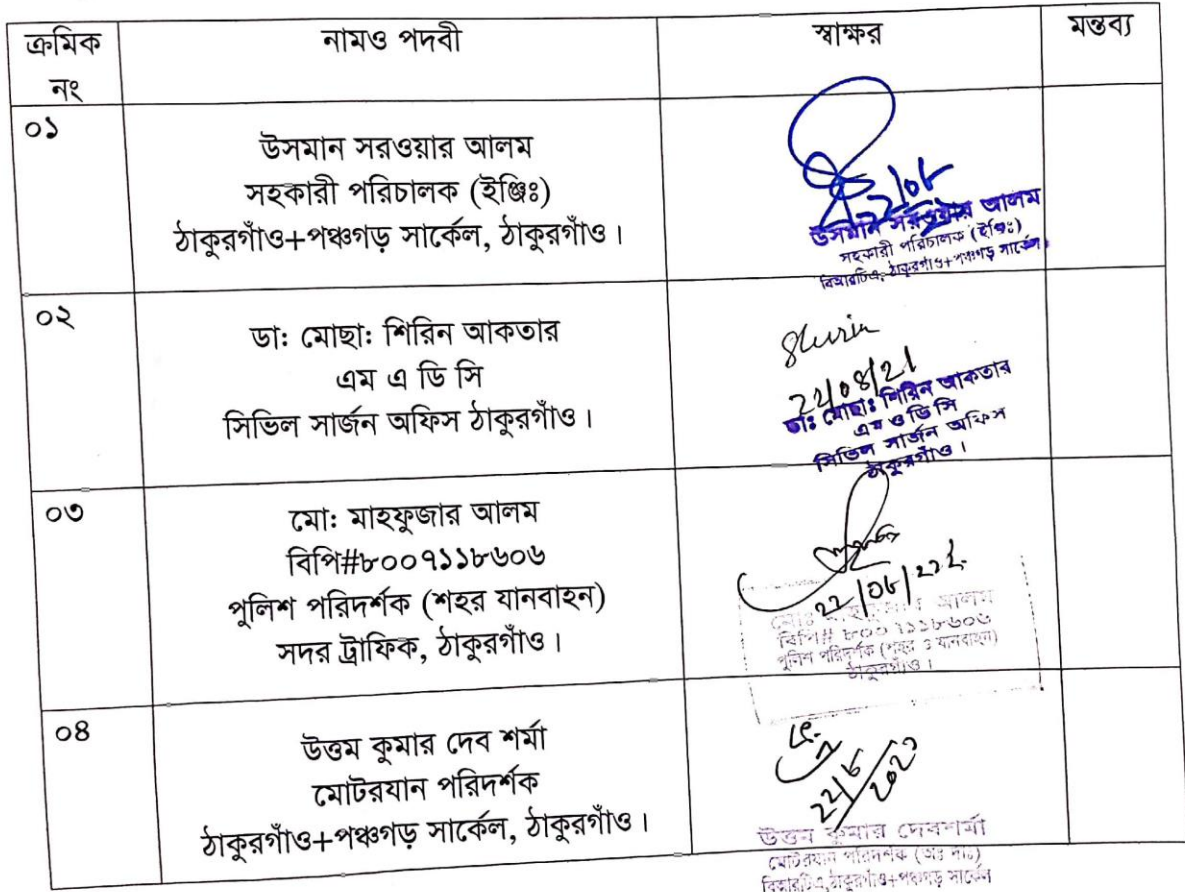 ক্রমিক নং
নামও পদবী
স্বাক্ষর
মন্তব্য
০১
উসমান সরওয়ার আলম
সহকারী পরিচালক (ইঞ্জিঃ)
ঠাকুরগাঁও+পঞ্চগড় সার্কেল, ঠাকুরগাঁও।
উসমান সরওয়ার আলম
সহকারী পরিচালক (ইঞ্জিঃ)
বিআরটিএ, ঠাকুরগাঁও+পঞ্চগড় সার্কেল।
০২
ডা: মোছা: শিরিন আকতার
এম এ ডি সি
সিভিল সার্জন অফিস ঠাকুরগাঁও।
22/08/21
ডা: মোছা: শিরিন আকতার
এম ও ডি সি
সিভিল সার্জন অফিস
ঠাকুরগাঁও।
০৩
মো: মাহফুজার আলম
বিপি#৮০০৭১১৮৬০৬
পুলিশ পরিদর্শক (শহর যানবাহন)
সদর ট্রাফিক, ঠাকুরগাঁও।
আলম
বিপি# ৮০০৭১১৮৬০৬
পুলিশ পরিদর্শক (শহর ও যানবাহন)
ঠাকুরগাঁও।
০৪
উত্তম কুমার দেব শর্মা
মোটরযান পরিদর্শক
ঠাকুরগাঁও+পঞ্চগড় সার্কেল, ঠাকুরগাঁও।
উত্তম কুমার দেবশর্মা
মোটরযান পরিদর্শক
বিআরটিএ,ঠাকুরগাঁও+পঞ্চগড় সার্কেল